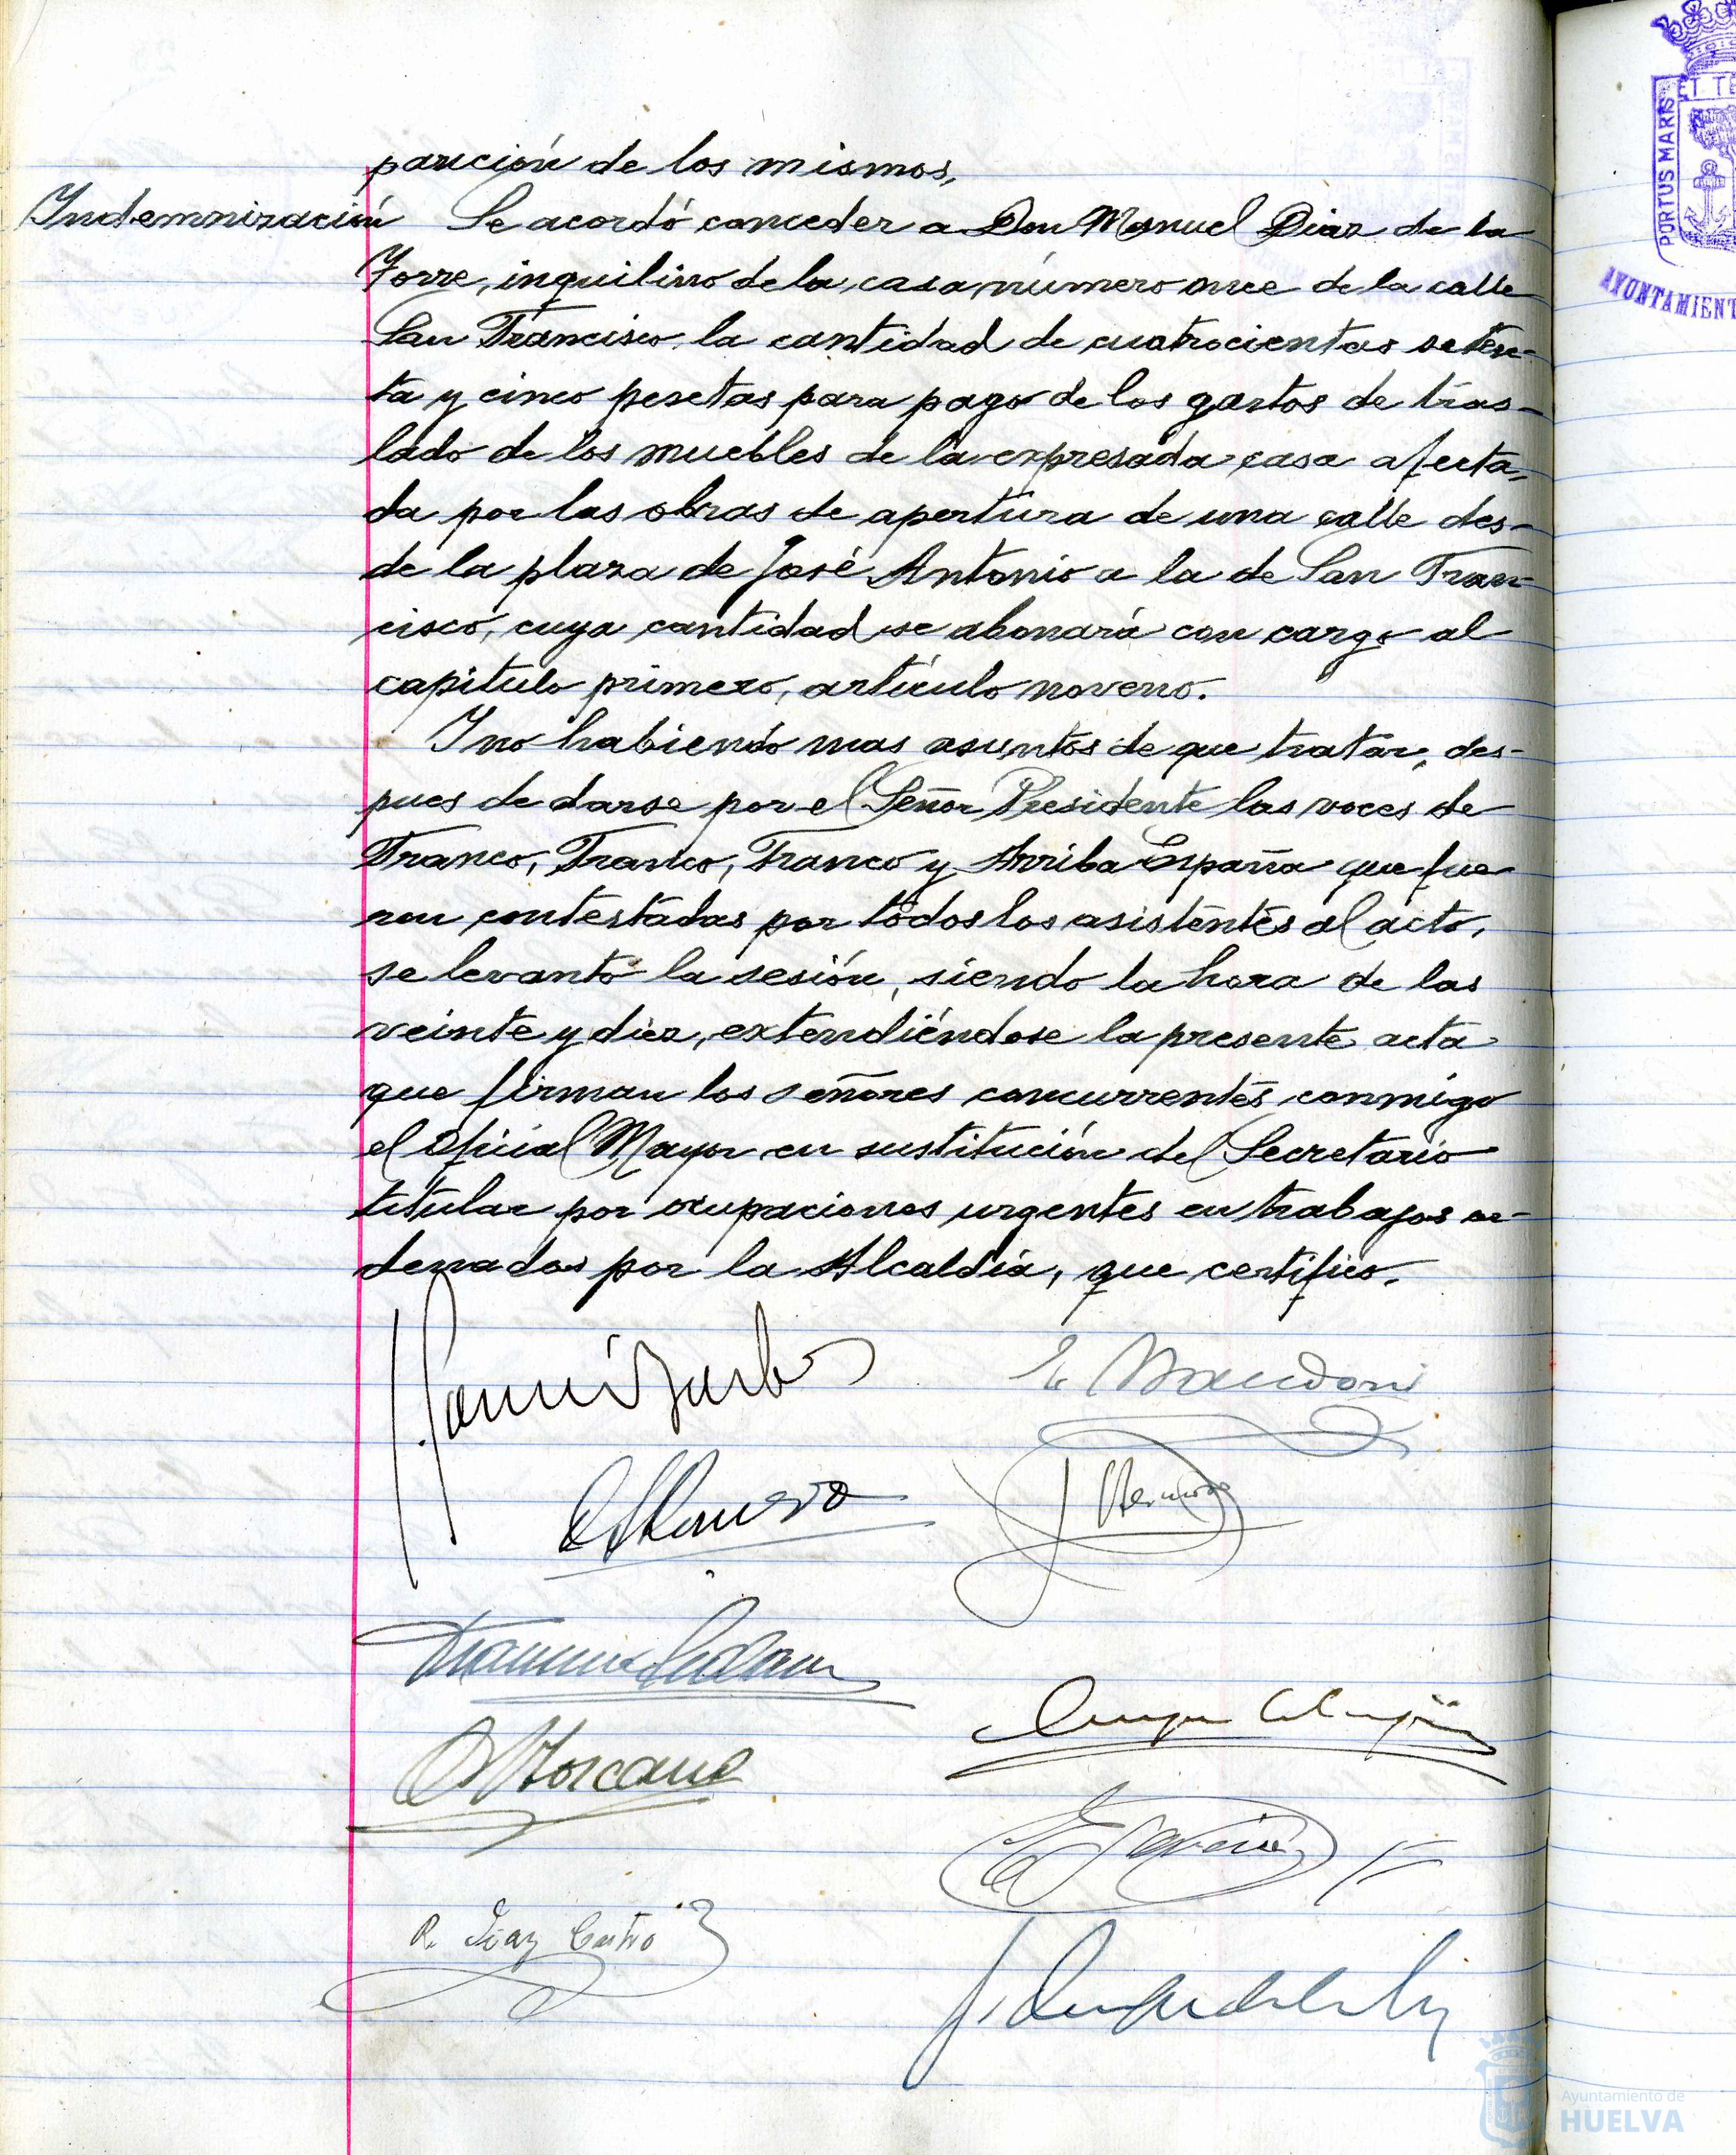 parición de los mismos.
Indemnización Se acordó conceder a Don Manuel Diaz de la
Torre, inquilino de la casa número once de la calle
San Francisco la cantidad de cuatrocientas seten-
ta y cinco pesetas para pago de los gastos de tras-
lado de los muebles de la expresada casa afecta-
da por las obras de apertura de una calle des-
de la plaza de José Antonio a la de San Fran-
cisco, cuya cantidad se abonará con cargo al
capítulo primero, artículo noveno.
Y no habiendo mas asuntos de que tratar, des-
pues de darse por el Señor Presidente las voces de
Franco, Franco, Franco y Arriba España que fue
ron contestadas por todos los asistentes al acto,
se levantó la sesión, siendo la hora de las
veinte y diez, extendiéndose la presente acta
que firman los señores concurrentes conmigo
el Oficial Mayor en sustitución del Secretario
titular por ocupaciones urgentes en trabajos or-
denados por la Alcaldía, que certifico.
R. Diaz Castro
PORTUS MARIS ET TE
AYUNTAMIENT
Ayuntamiento de
HUELVA